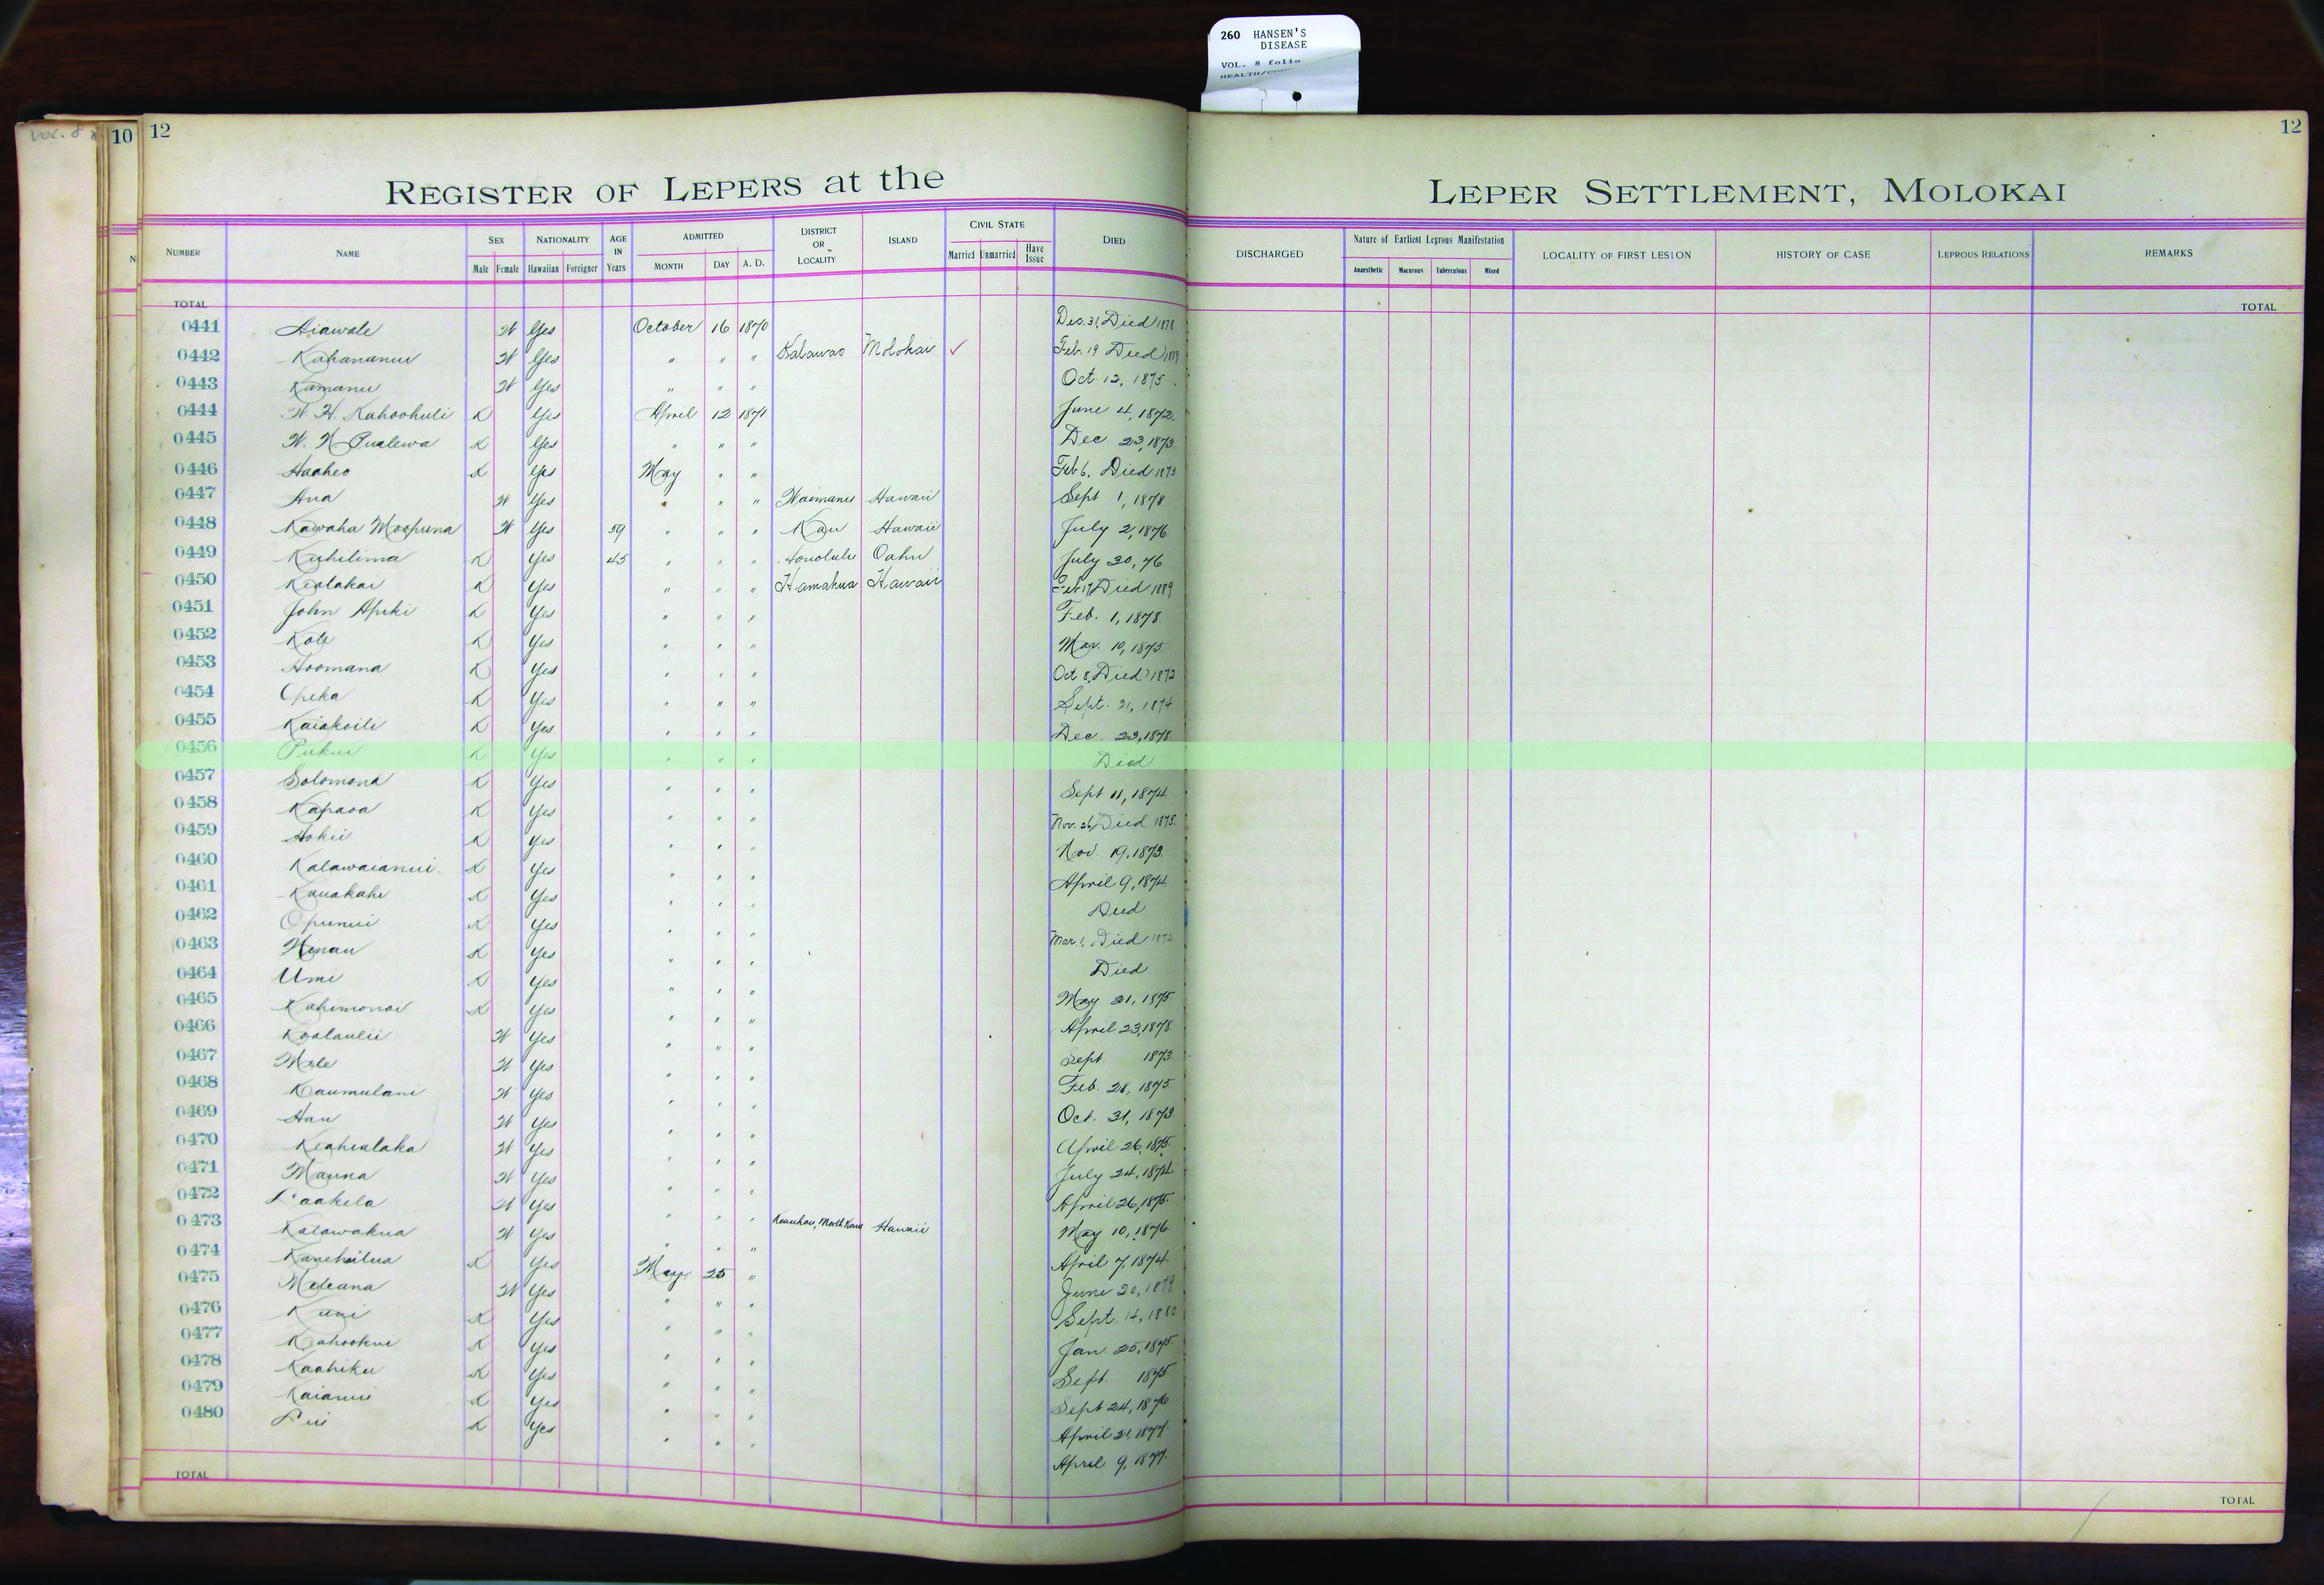 260 HANSEN'S
DISEASE
VOL. 8 folio
VOL. 8
10 12 12
REGISTER OF LEPERS at the LEPER SETTLEMENT, MOLOKAI
NUMBER NAME SEX Male Female NATIONALITY Hawaiian Foreigner AGE IN Years ADMITTED MONTH DAY A. D. DISTRICT OR LOCALITY ISLAND CIVIL STATE Married Unmarried Have Issue DIED DISCHARGED Nature of Earliest Leprous Manifestation Anaesthetic Macurous Tuberculous Mixed LOCALITY OF FIRST LESION HISTORY OF CASE LEPROUS RELATIONS REMARKS
TOTAL TOTAL
0441 Aiawale W Yes October 16 1870 Dec. 31, Died 1878
0442 Kahananui W Yes " " " Kalawao Molokai ✓ Feb. 19 Died
0443 Kamanu W Yes " " " Oct. 12, 1875
0444 W. H. Kahoohuli K Yes April 12 1871 June 4, 1872
0445 W. N. Pualewa K Yes " " " Dec 23, 1873
0446 Haaheo K Yes May " " Feb 6, Died 1873
0447 Ana W Yes " " " Waimanu Hawaii Sept 1, 1878
0448 Kawaha Moopuna W Yes 59 " " " Kau Hawaii July 2, 1876
0449 Kuhilima K Yes 45 " " " Honolulu Oahu July 30, 76
0450 Kealakai K Yes " " " Hamakua Hawaii Feb 17, Died 1889
0451 John Apiki K Yes " " " Feb. 1, 1878
0452 Kole K Yes " " " Mar. 10, 1875
0453 Hoomana K Yes " " " Oct 8, Died 1872
0454 Opeka K Yes " " " Sept. 21, 1874
0455 Kaiakoili K Yes " " " Dec. 23, 1878
0456 Pukui K Yes " " " Died
0457 Solomona K Yes " " " Sept 11, 1874
0458 Kapaoa K Yes " " " Nov. 26, Died 1875
0459 Hokii K Yes " " " Nov. 19, 1873
0460 Kalawaianui K Yes " " " April 9, 1874
0461 Kauakahi K Yes " " " Died
0462 Opunui K Yes " " " Mar. 1, Died
0463 Winau K Yes " " " Died
0464 Umi K Yes " " " May 21, 1875
0465 Kahimonai K Yes " " " April 23, 1878
0466 Koolaulii W Yes " " " Sept 1873
0467 Mele W Yes " " " Feb. 28, 1875
0468 Kaumulani W Yes " " " Oct. 31, 1873
0469 Hau W Yes " " " April 26, 1875
0470 Keahialaka W Yes " " " July 24, 1874
0471 Mauna W Yes " " " April 26, 1875
0472 Laakela W Yes " " " Keauhou, North Kona Hawaii May 10, 1876
0473 Kalawakua W Yes " " " April 7, 1874
0474 Kanehailua K Yes May 25 " June 20, 1879
0475 Meleana W Yes " " " Sept. 14, 1880
0476 Kuni K Yes " " " Jan 25, 1875
0477 Kahookui K Yes " " " Sept. 1875
0478 Kaahiku K Yes " " " Sept 24, 1876
0479 Kaianui K Yes " " " April 21, 1877
0480 Lui K Yes " " " April 9, 1877
TOTAL TOTAL